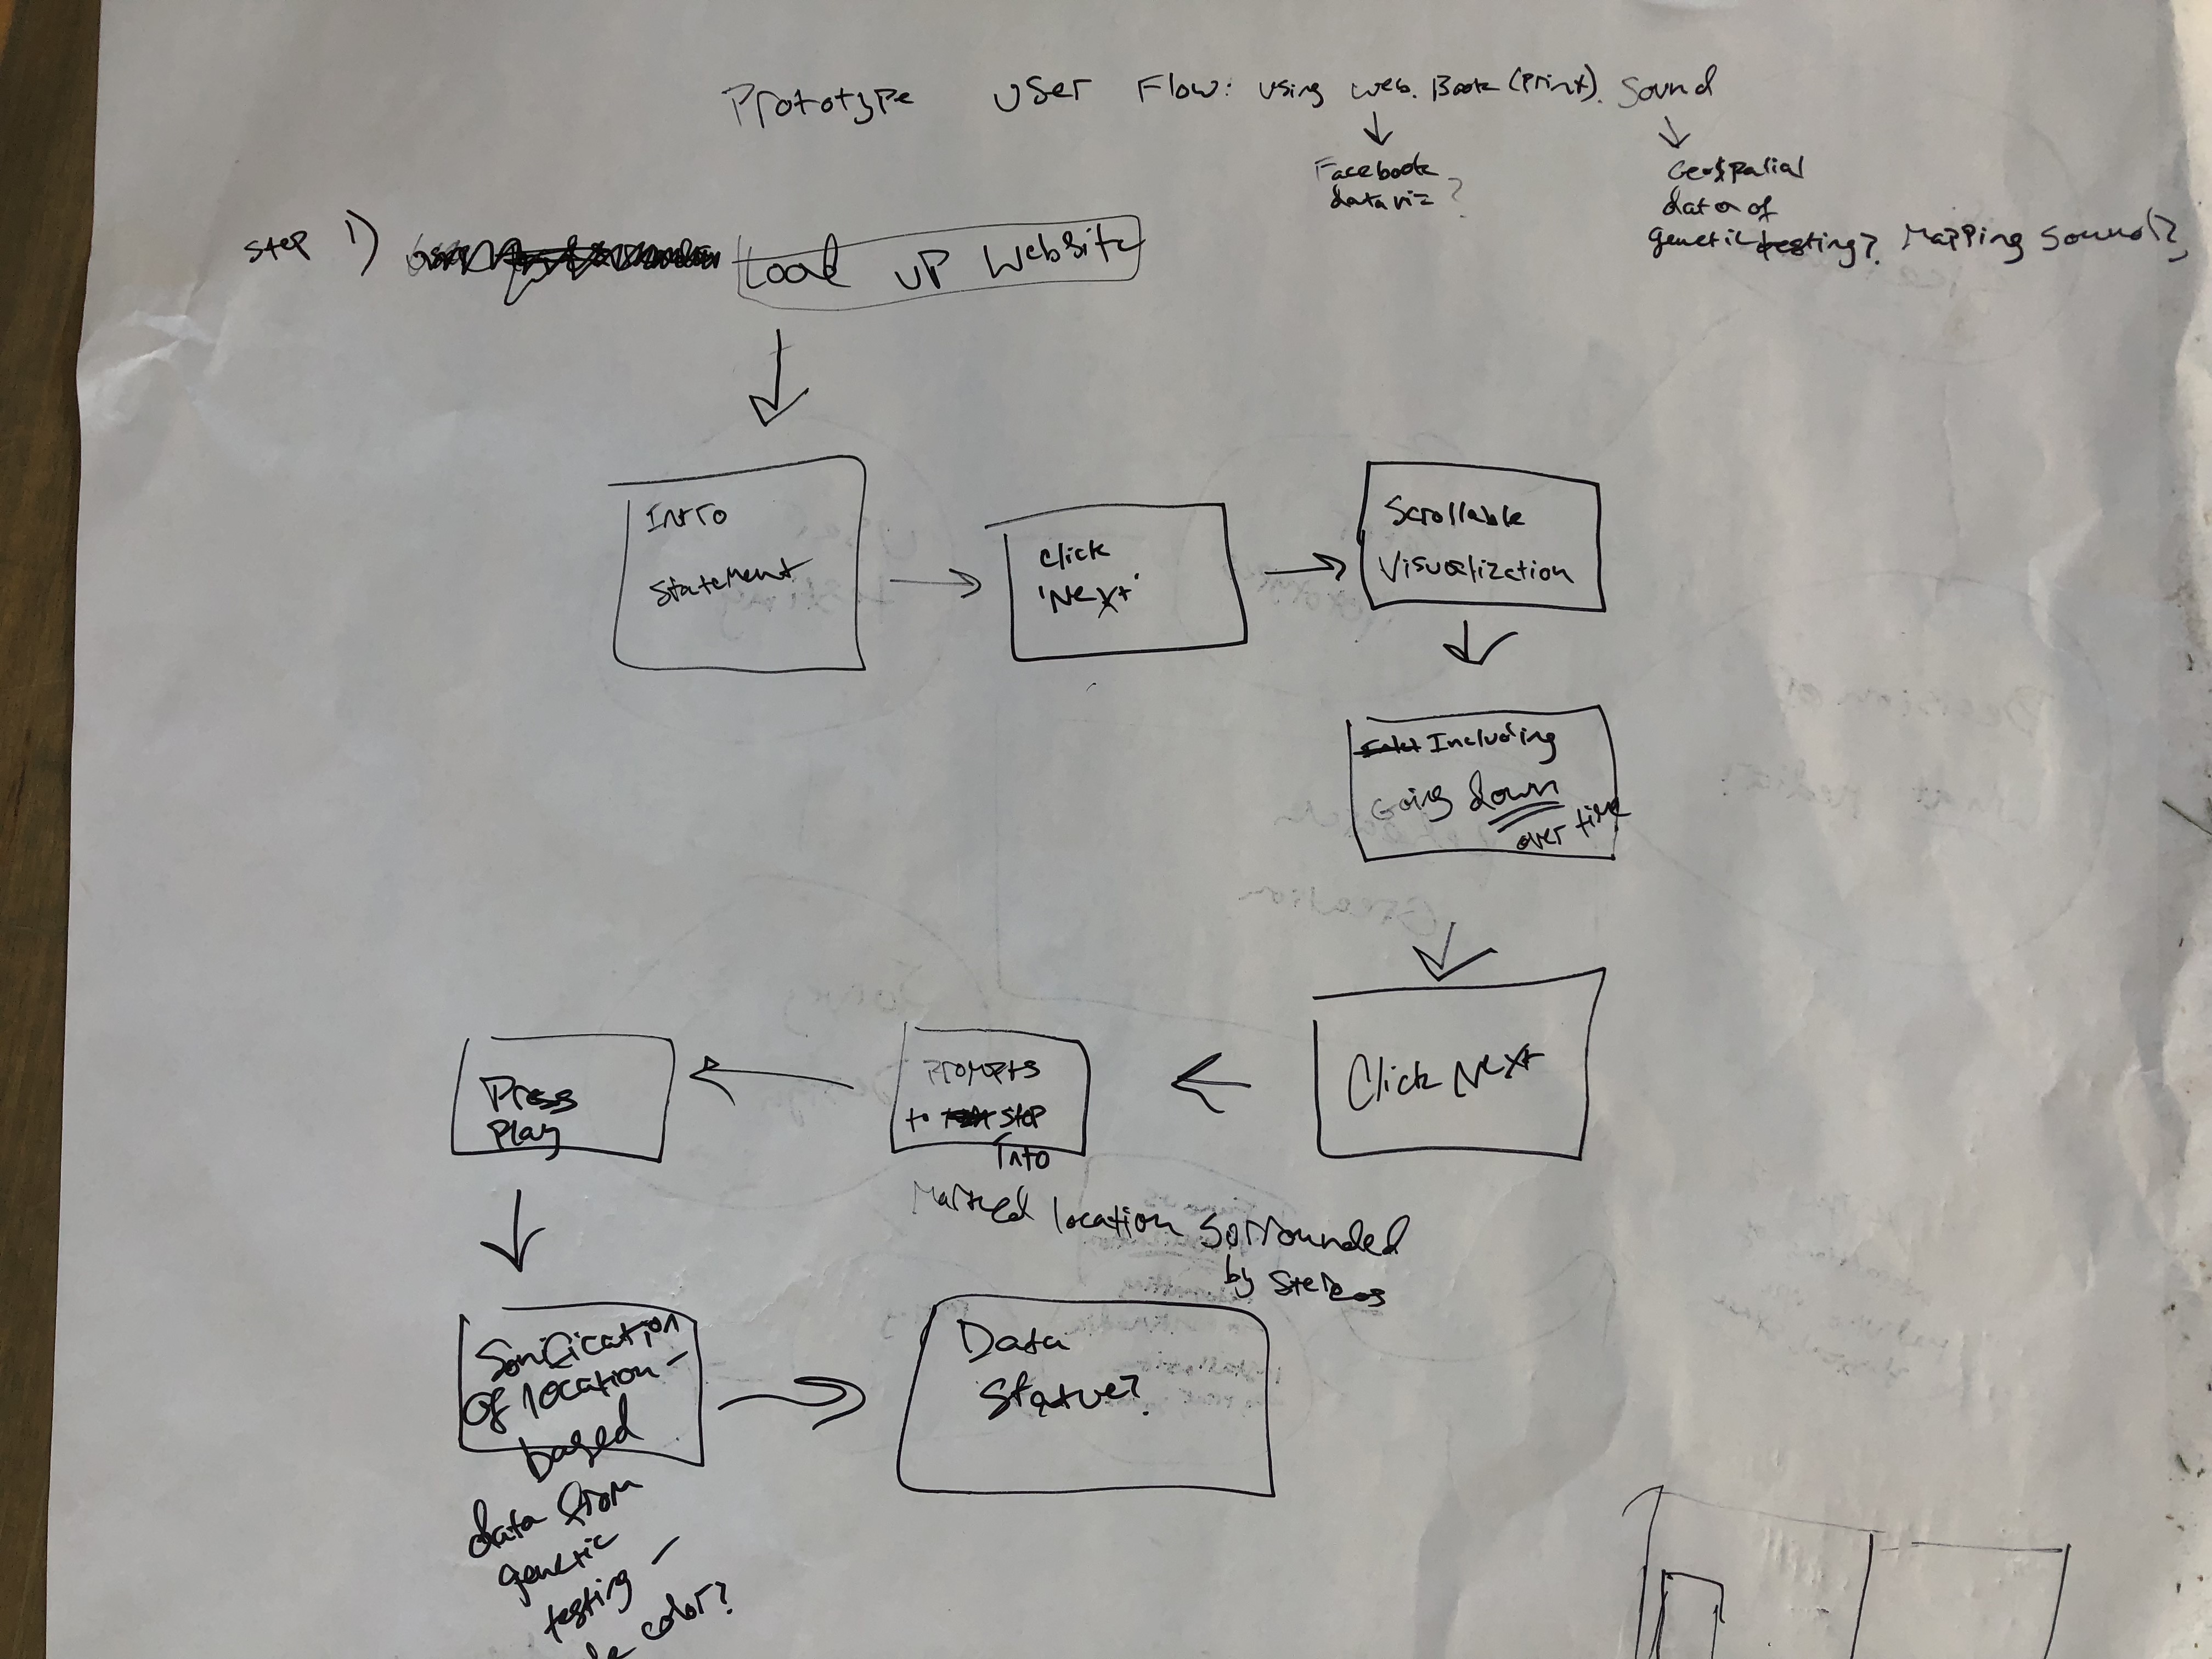 Prototype User Flow: using web. Book (print). Sound
Facebook
data viz?
Geospatial
data of
genetic testing? Mapping sound?
Step 1) Look up Website
Intro
Statement
Click
'Next'
Scrollable
Visualization
Including
Going down
over time
Click Next
Prompts
to step
into
Marked location sorrounded
by stereos
Press
Play
Sonification
of location-
based
data from
genetic
testing -
color?
Data
Statue?